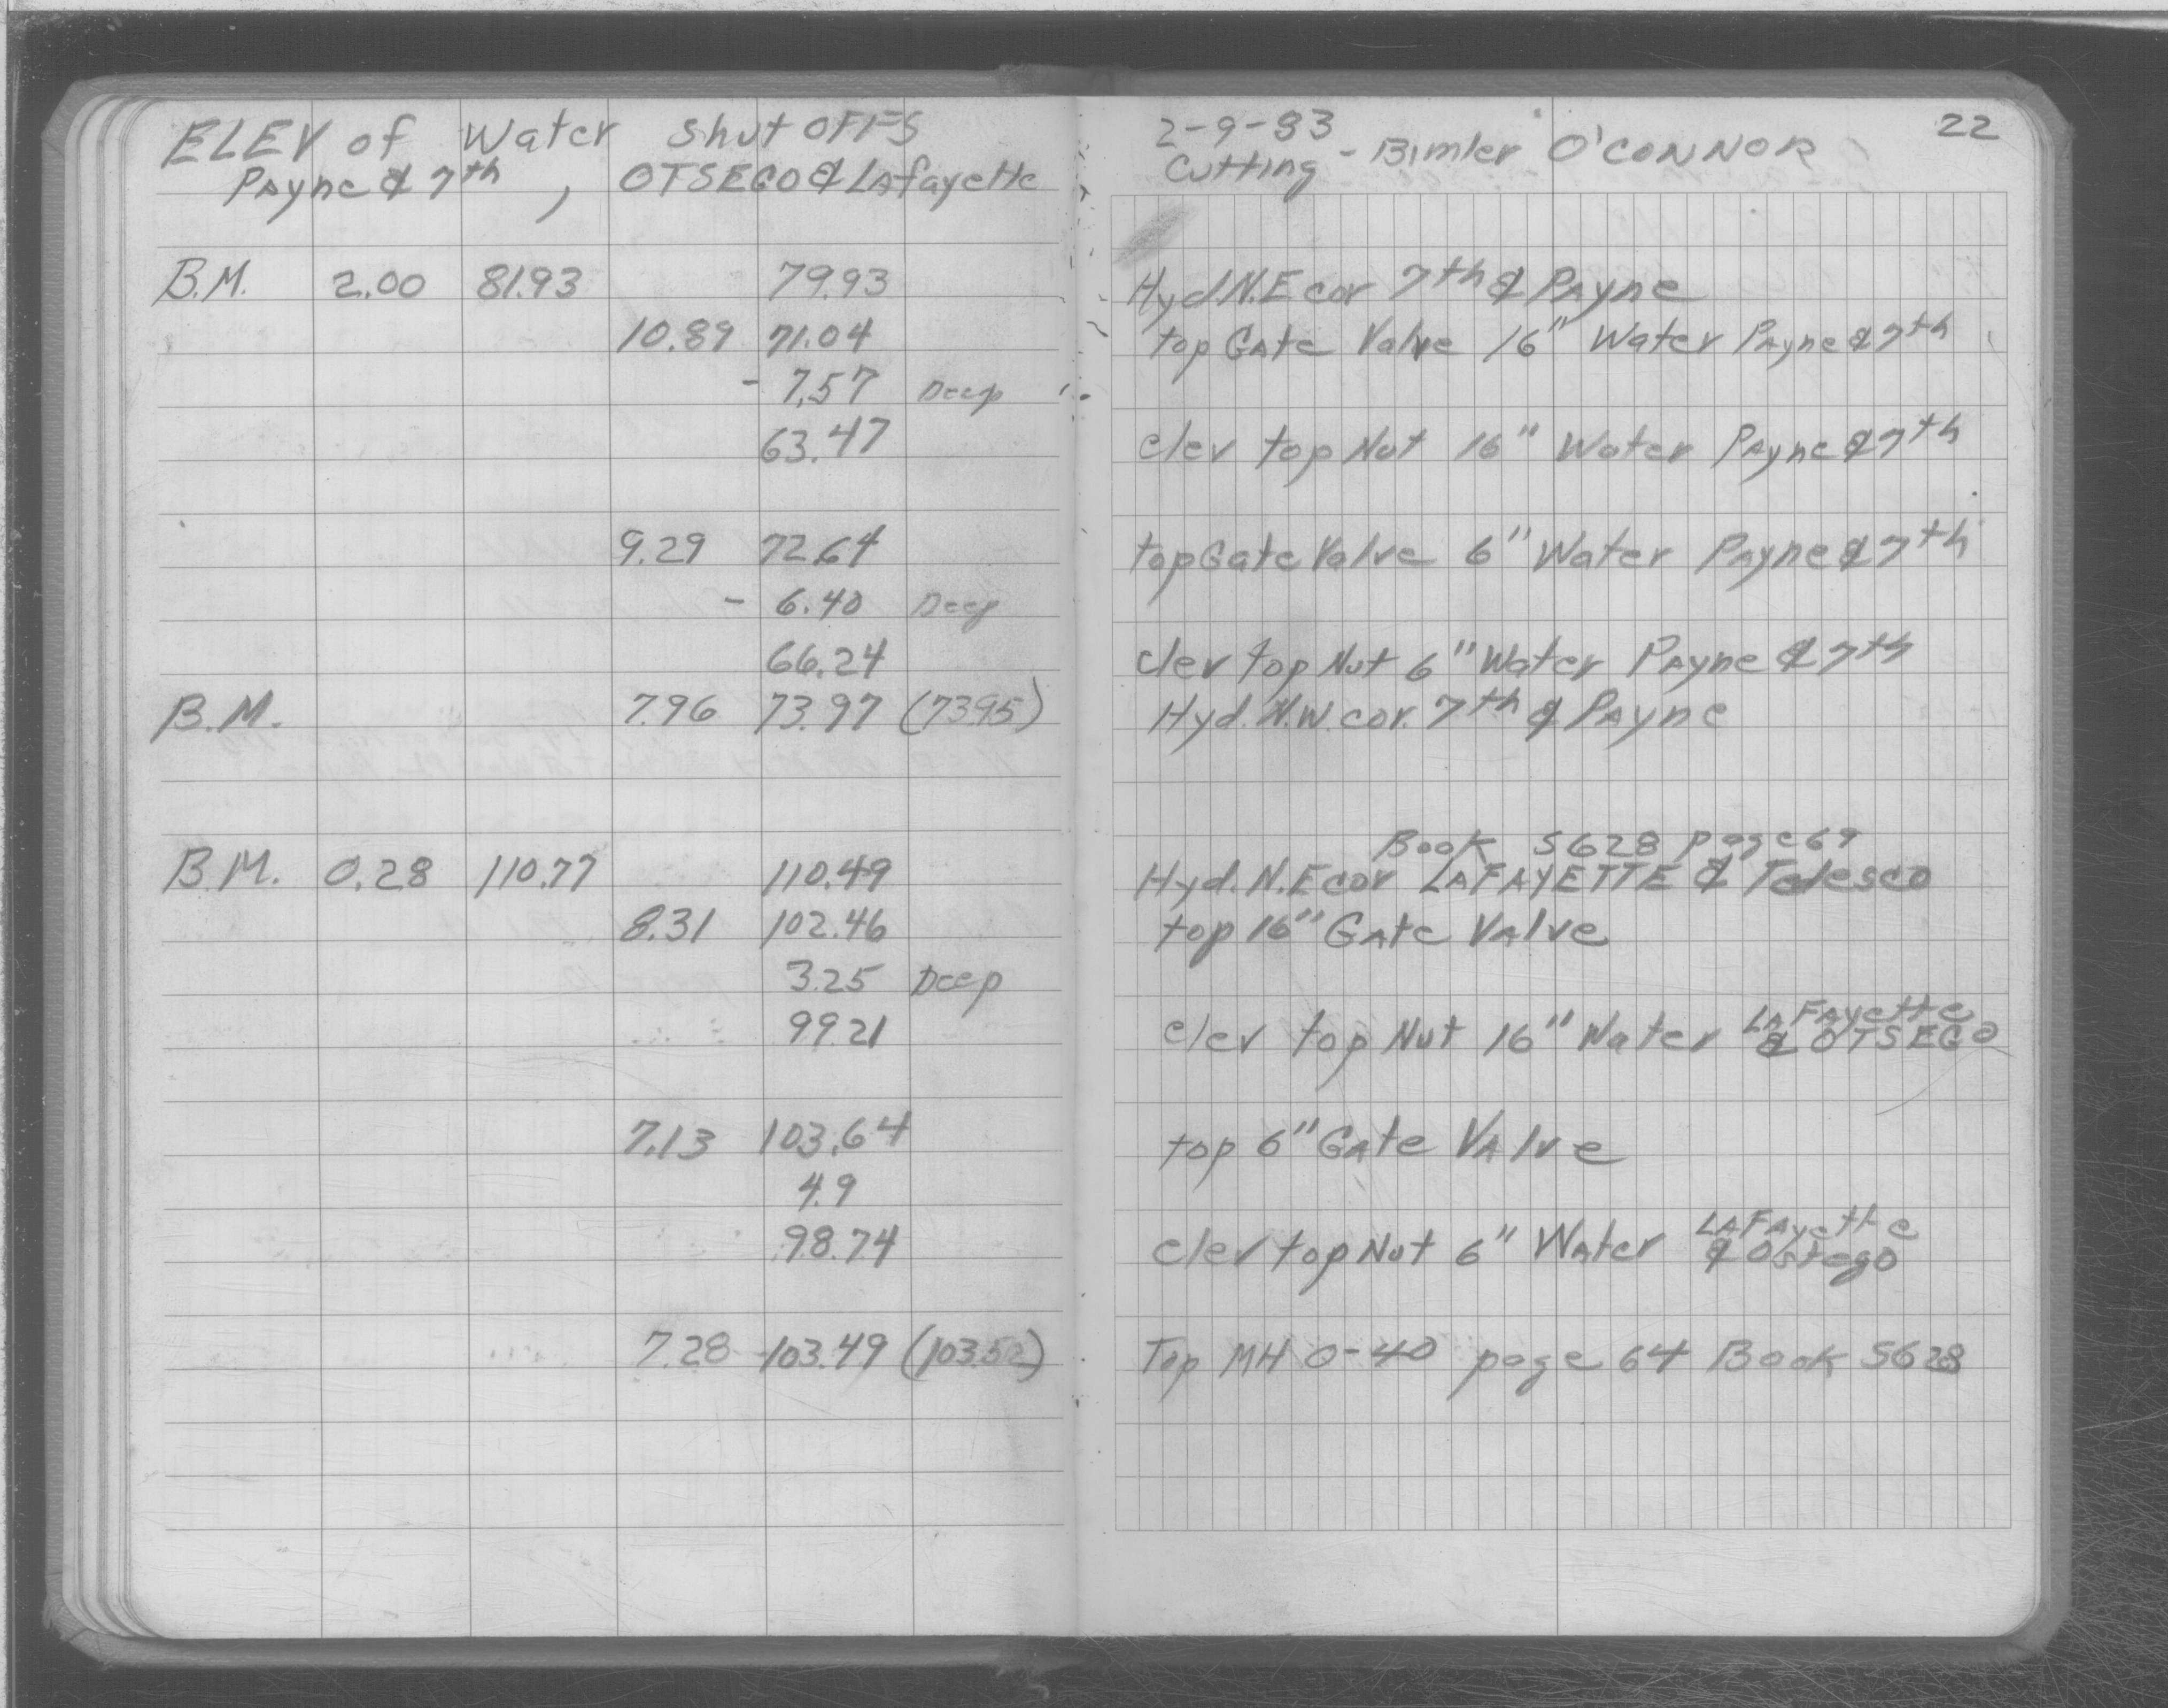 ELEV of Water Shut OFFS
Payne & 7th, OTSEGO & Lafayette
2-9-83
22
Cutting - Bimler O'CONNOR
B.M. 2.00 81.93 79.93 Hyd N.E cor 7th & Payne
10.89 71.04 top Gate Valve 16" Water Payne & 7th
- 7.57 Deep
63.47 elev top Nut 16" Water Payne & 7th
9.29 72.64 top Gate Valve 6" Water Payne & 7th
- 6.40 Deep
66.24 elev top Nut 6" Water Payne & 7th
B.M. 7.96 73.97 (73.95) Hyd. N.W. cor. 7th & Payne
Book 5628 page 69
B.M. 0.28 110.77 110.49 Hyd. N.E cor LAFAYETTE & Tedesco
8.31 102.46 top 16" Gate Valve
3.25 Deep
99.21 elev top Nut 16" Water LaFayette & OTSEGO
7.13 103.64 top 6" Gate Valve
4.9
98.74 elev top Nut 6" Water LAFayette & Ostego
7.28 103.49 (103.52) Top MH 0-40 page 64 Book 5628